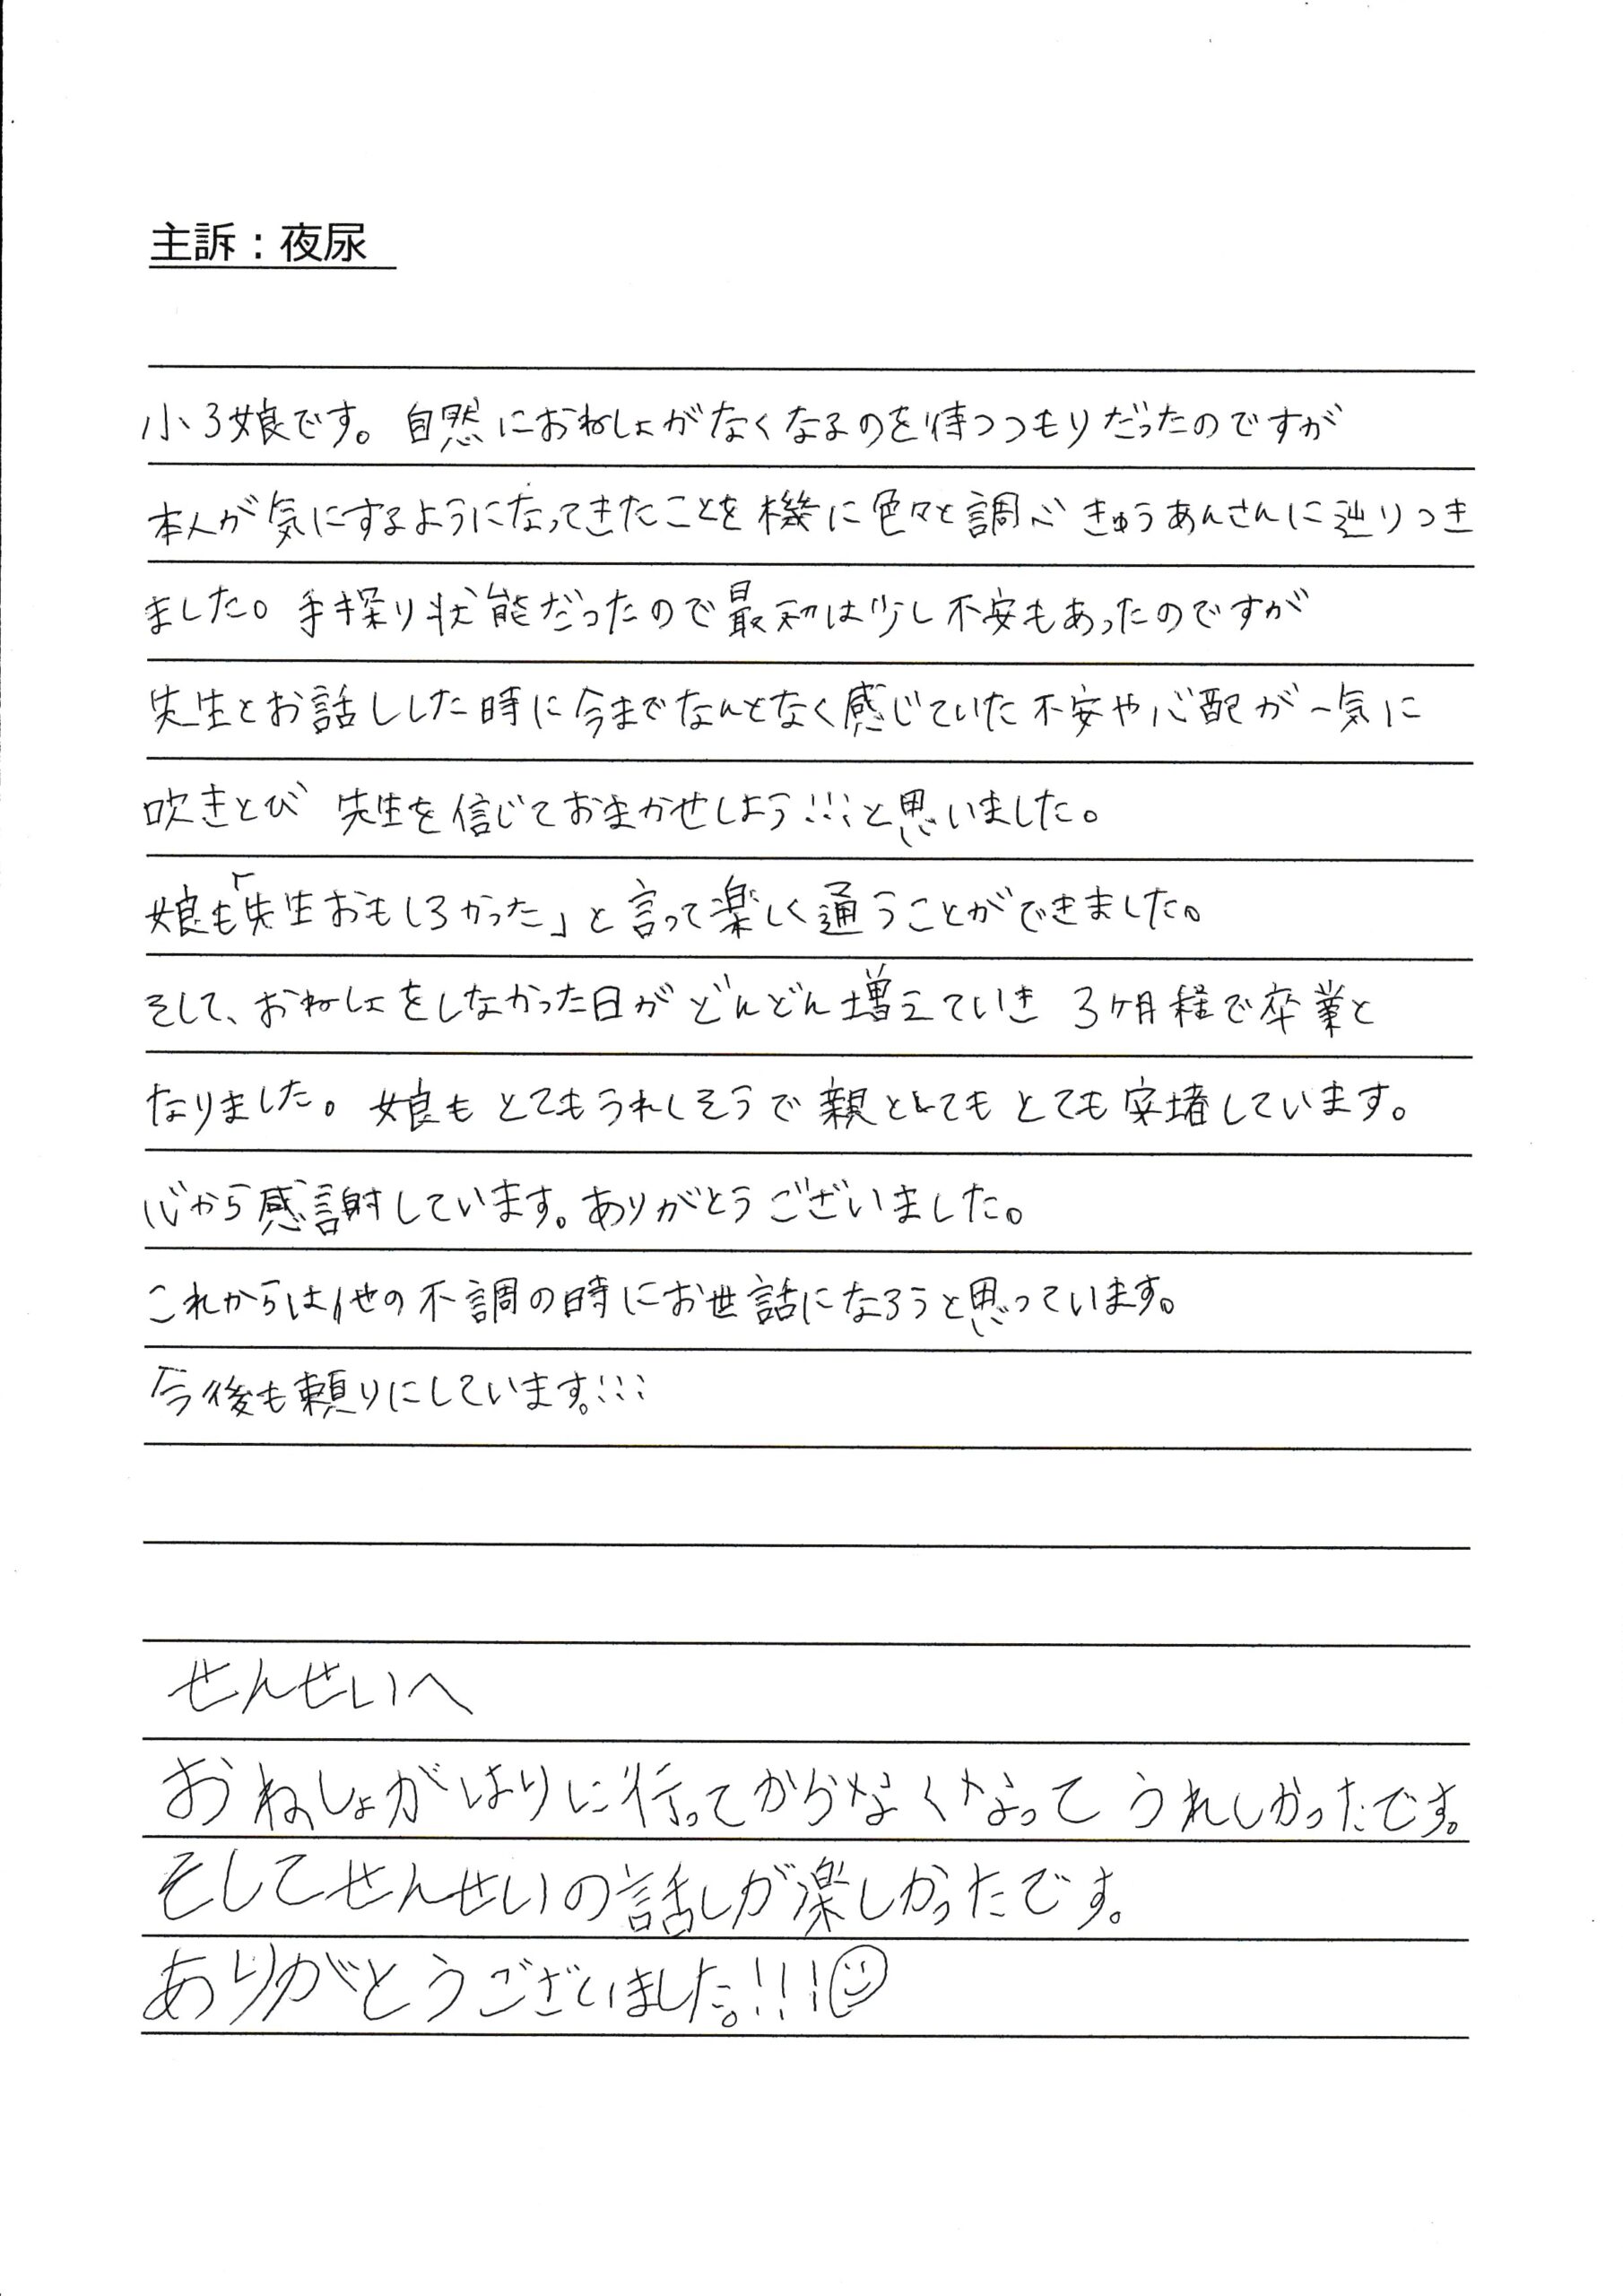 主訴：夜尿
小3娘です。自然におねしょがなくなるのを待つつもりだったのですが
本人が気にするようになってきたことを機に色々と調べきゅうあんさんに辿りつき
ました。手探り状能だったので最初は少し不安もあったのですが
先生とお話しした時に今までなんとなく感じていた不安や心配が一気に
吹きとび 先生を信じておまかせしよう!!!と思いました。
娘も「先生おもしろかった」と言って楽しく通うことができました。
そして、おねしょをしなかった日がどんどん増えていき 3ヶ月程で卒業と
なりました。娘もとてもうれしそうで親としてもとても安堵しています。
心から感謝しています。ありがとうございました。
これからは他の不調の時にお世話になろうと思っています。
今後も頼りにしています。!!!
せんせいへ
おねしょがはりに行ってからなくなってうれしかったです。
そしてせんせいの話しが楽しかったです。
ありがとうございました。!!!☺